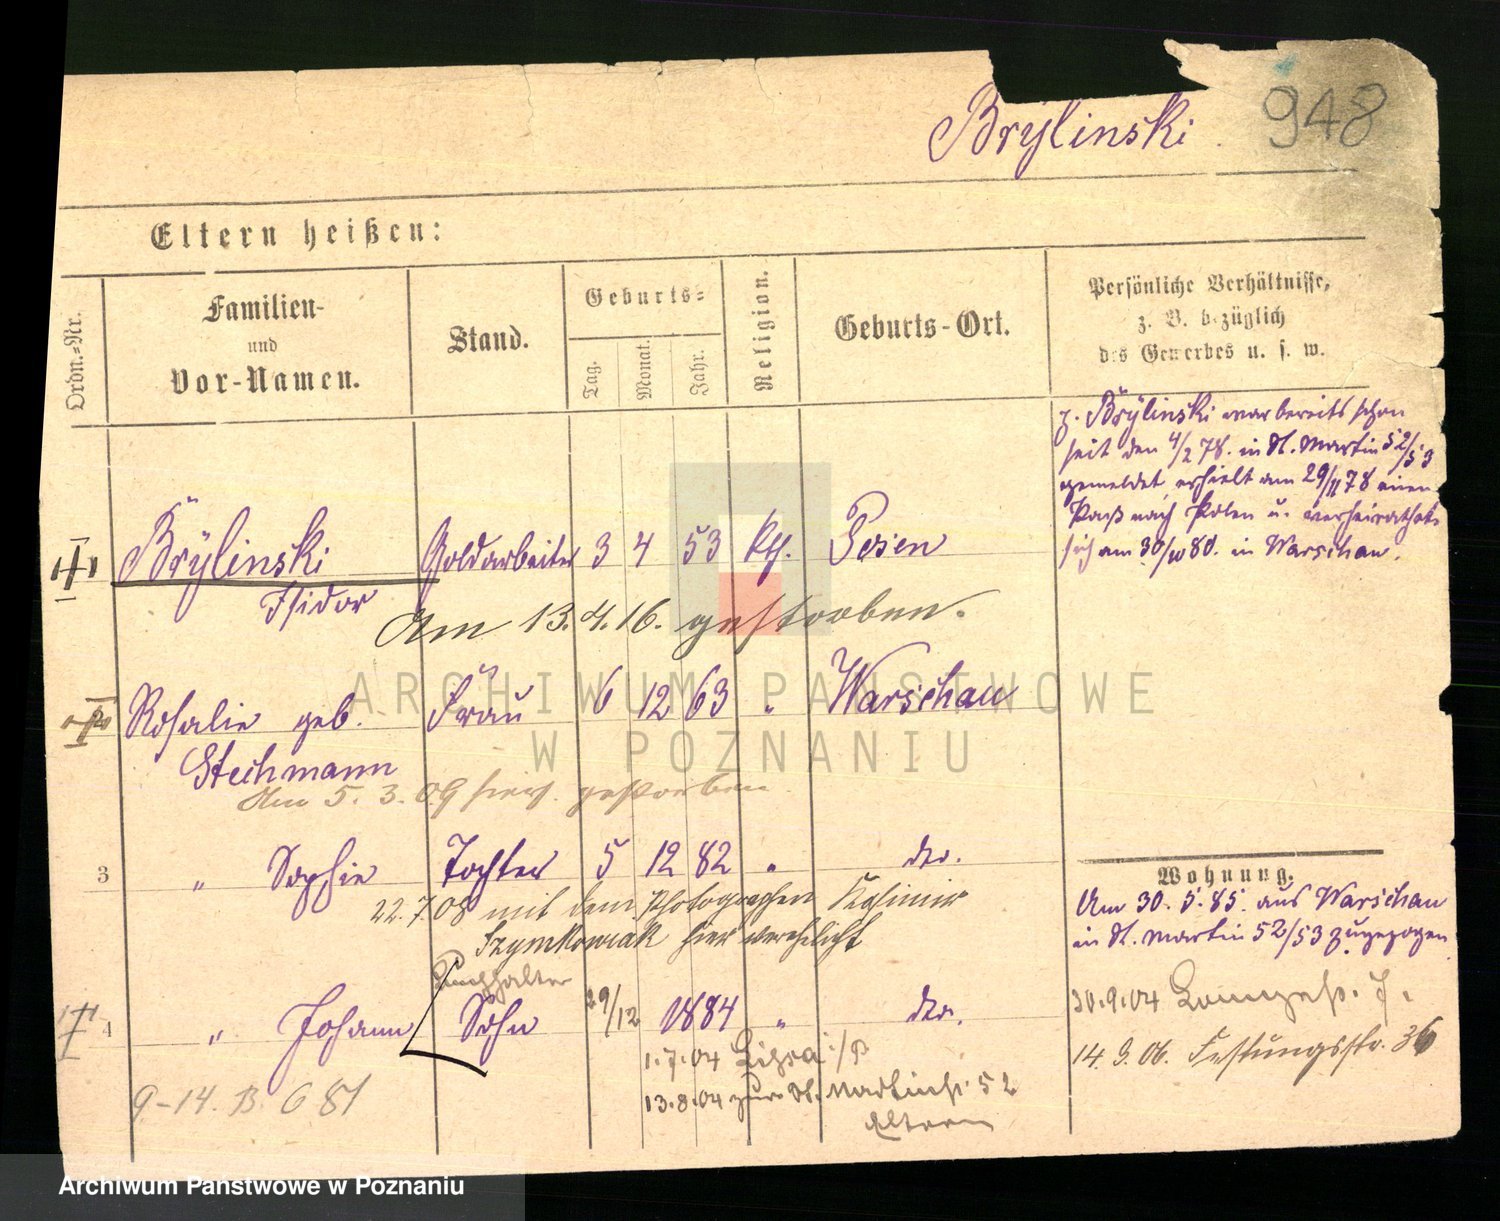 Brÿlinski
948
Eltern heißen:
Ordn.-Nr.
Familien-
und
Vor-Namen.
Stand.
Geburts-
Tag.
Monat.
Jahr.
Religion.
Geburts-Ort.
Persönliche Verhältnisse,
z. B. bezüglich
des Gewerbes u. s. w.
p. Brÿlinski war bereits schon
seit den 4/2 78. in St. Martin 52/53
gemeldet, erhielt am 29/11 78 einen
Paß nach Polen u. verheirathete
sich am 30/10 80. in Warschau.
Brÿlinski Goldarbeiter 3 4 53 kth. Posen
Isidor
Am 13. 4. 16. gestorben.
Rosalie geb. Frau 6 12 63 " Warschau
Stechmann
Am 5. 3. 09 hier gestorben
3 " Sophie Tochter 5 12 82 " do.
22. 7. 08 mit dem Photographen Kasimir
Szymkowiak hier verehelicht
Wohnung.
Am 30. 5. 85. aus Warschau
in St. Martin 52/53 zugezogen
Buchhalter
4 " Johann Sohn 29/12 1884 " do.
30. 9. 04
1. 7. 04 Lissa i/P
14. 9. 06. Festungsstr. 36
13. 8. 04 zur. St. Martinstr. 52
Eltern
9-14. B 681
ARCHIWUM PAŃSTWOWE
W POZNANIU
Archiwum Państwowe w Poznaniu